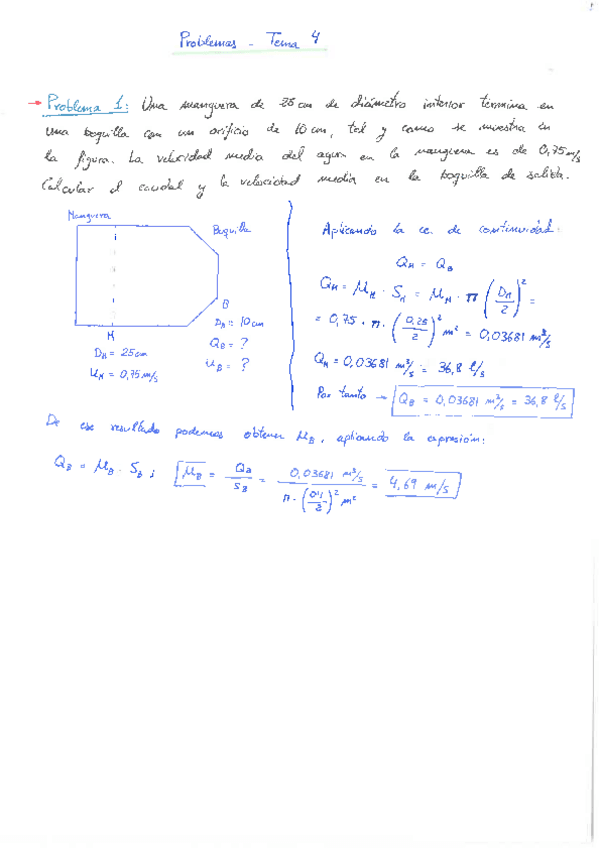 1
Problemas - Tema 4
→ Problema 1: Una manguera de 25 cm de diámetro interior termina en
una boquilla con un orificio de 10 cm, tal y como se muestra en
la figura. La velocidad media del agua en la manguera es de 0,75 m/s
Calcular el caudal y la velocidad media en la boquilla de salida.
Manguera
Boquilla
B
M
D_M = 25 cm
u_M = 0,75 m/s
D_B = 10 cm
Q_B = ?
u_B = ?
Aplicando la ec. de continuidad:
Q_M = Q_B
Q_M = u_M · S_M = u_M · π (D_M/2)² =
= 0,75 · π · (0,25/2)² m² = 0,03681 m³/s
Q_M = 0,03681 m³/s = 36,8 l/s
Por tanto → Q_B = 0,03681 m³/s = 36,8 l/s
De ese resultado podemos obtener u_B, aplicando la expresión:
Q_B = u_B · S_B ; u_B = Q_B/S_B = 0,03681 m³/s / π · (0,1/2)² m² = 4,69 m/s